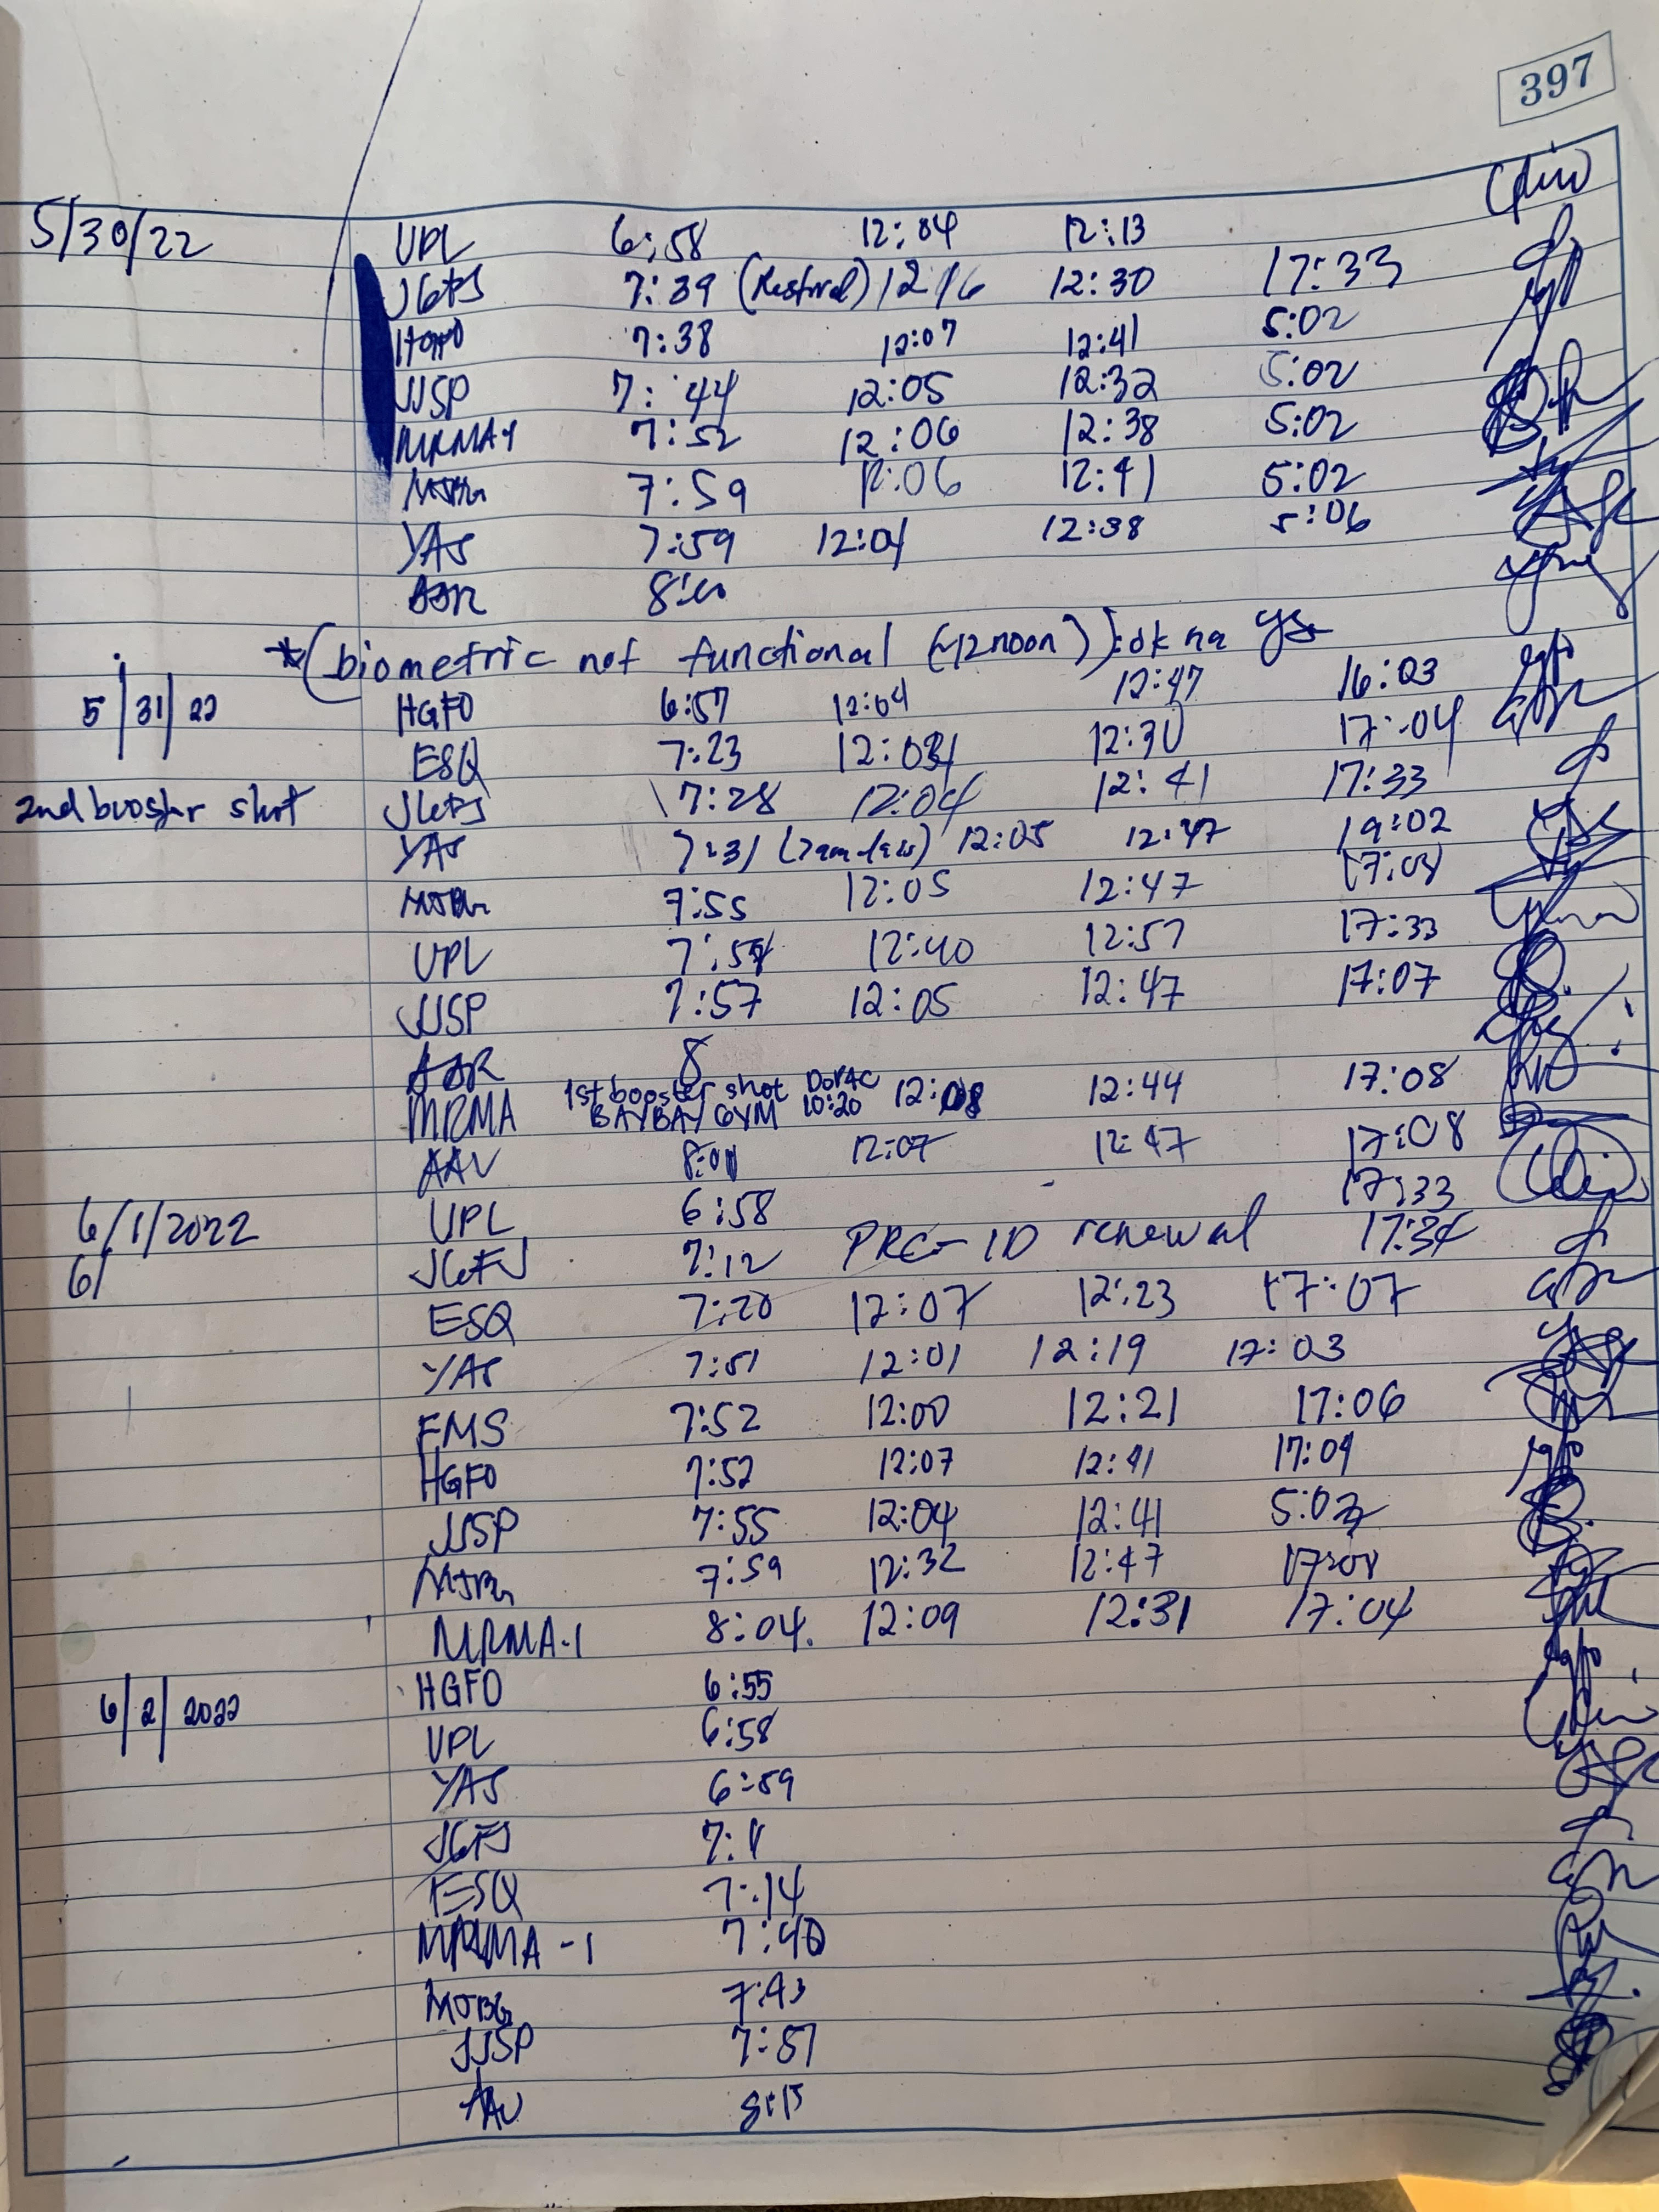 397
5/30/22 UPL 6:58 12:04 12:13
JGFS 7:39 12 16 12:30 17:33
HGFO 7:38 12:07 12:41 5:02
JJSP 7:44 12:05 12:32 5:02
MRMA-1 7:52 12:06 12:38 5:02
7:59 12:06 12:41 5:02
YAS 7:59 12:04 12:38 5:06
*(biometric not functional (~12noon)):ok na
5/31/22 HGFO 6:57 12:04 12:47 16:03
ESQ 7:23 12:30 17:04
2nd booster shot JGFS 7:28 12:04 12:41 17:33
YAS 7:31 12:05 12:47 19:02
7:55 12:05 12:47
UPL 12:40 12:57 17:33
JJSP 7:57 12:05 12:47 17:07
8
MRMA 1st booster shot BAYBAY GYM 10:20 12:08 12:44 17:08
AAV 12:07 12:47 17:08
6/1/2022 UPL 6:58 17:33
6/ JGFJ 7:12 PRC-ID renewal 17:34
ESQ 7:20 12:07 12:23 17:07
YAS 7:51 12:01 12:19 17:03
FMS 7:52 12:00 12:21 17:06
HGFO 7:52 12:07 12:41 17:09
JJSP 7:55 12:04 12:41
7:59 12:32 12:47
MRMA-1 8:04. 12:09 12:31 17:04
6/2/2022 HGFO 6:55
UPL 6:58
YAS 6:59
JGFJ
ESQ 7:14
MRMA-1 7:40
MJBG 7:43
JJSP 7:57
AAV 8:15